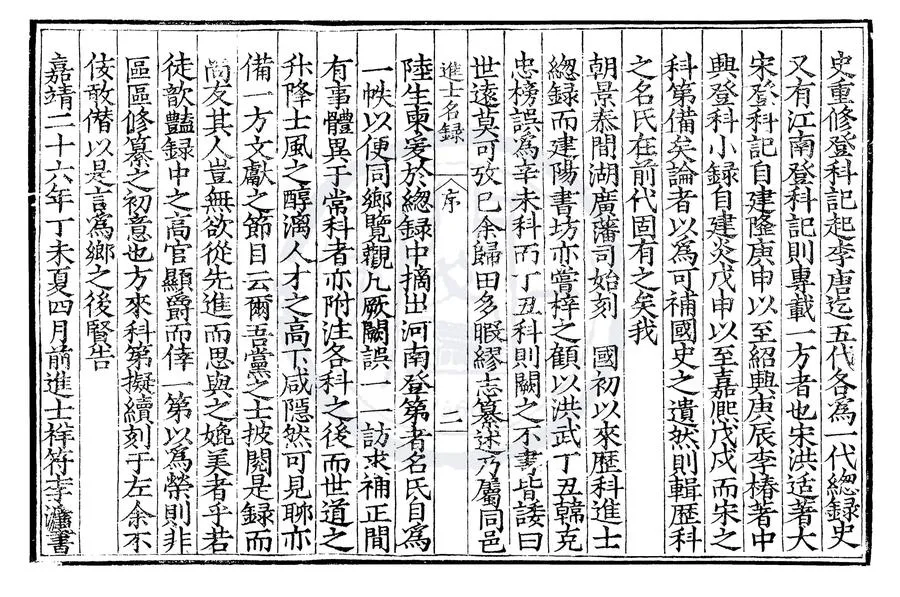 史重修登科記起李唐迄五代各為一代緫録史
又有江南登科記則專載一方者也宋洪适著大
宋登科記自建隆庚申以至紹興庚辰李椿著中
興登科小録自建炎戊申以至嘉熈戊戌而宋之
科第備矣論者以為可補國史之遺然則輯歷科
之名氏在前代固有之矣我
朝景泰間湖廣藩司始刻　國初以來歷科進士
緫録而建陽書坊亦嘗梓之顧以洪武丁丑韓克
忠榜誤為辛未科而丁丑科則闕之不書皆諉曰
世遠莫可攷已余歸田多暇繆志纂述乃屬同邑
進士名録
序
二
陸生柬爰於緫録中摘出河南登第者名氏自為
一帙以便同鄉覽觀凡厥闕誤一一訪求補正間
有事體異于常科者亦附注各科之後而世道之
升降士風之醇漓人才之高下咸隱然可見聊亦
備一方文獻之節目云爾吾黨之士披閱是録而
尚友其人豈無欲從先進而思與之媲美者乎若
徒歆豔録中之高官顯爵而倖一第以為榮則非
區區修纂之初意也方來科第擬續刻于左余不
佞敢僣以是言為鄉之後賢告
嘉靖二十六年丁未夏四月前進士祥符李濂書